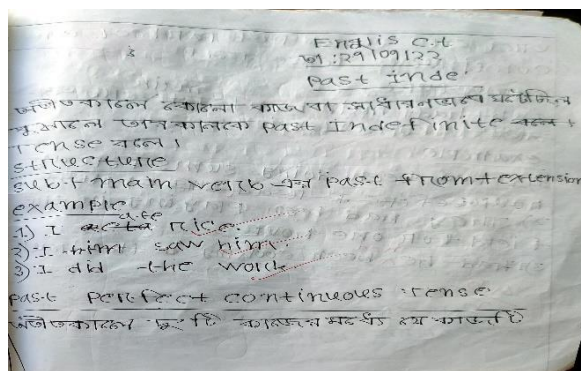 Englis C.t
তাং:29/09/23
Past inde
অতীতকালে কোনো কাজ বা সাধারনভাবে ঘটেছিল
বুঝালে তার কালকে Past Indefinite
Tense বলে।
structure
sub+main verb এর past from+extension
example
1) I ate rice.
2) I saw him.
3) I did the work
Past Perfect continuous tense
অতীতকালে দুটি কাজের মধ্যে যে কাজটি